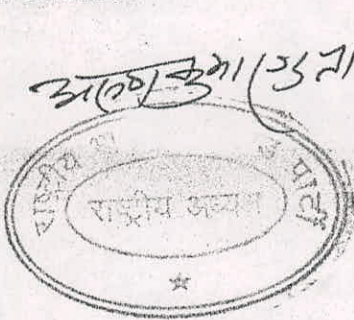 अरुण कुमार गुप्ता
राष्ट्रीय पार्टी
राष्ट्रीय अध्यक्ष